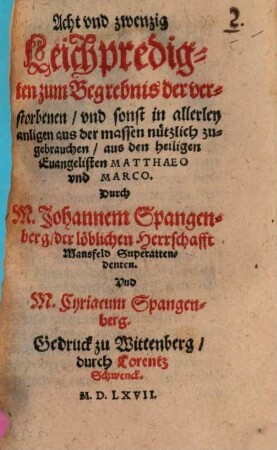 2.
Acht vnd zwenzig
Leichpredig-
ten zum Begrebnis der ver-
storbenen / vnd sonst in allerley
anligen aus der massen nützlich zu-
gebrauchen / aus den heiligen
Euangelisten MATTHAEO
vnd MARCO.
Durch
M. Johannem Spangen-
berg / der löblichen Herrschafft
Mansfeld Superatten-
denten.
Vnd
M. Cyriacum Spangen-
berg.
Gedruck zu Wittenberg /
durch Lorentz
Schwenck.
M. D. LXVII.